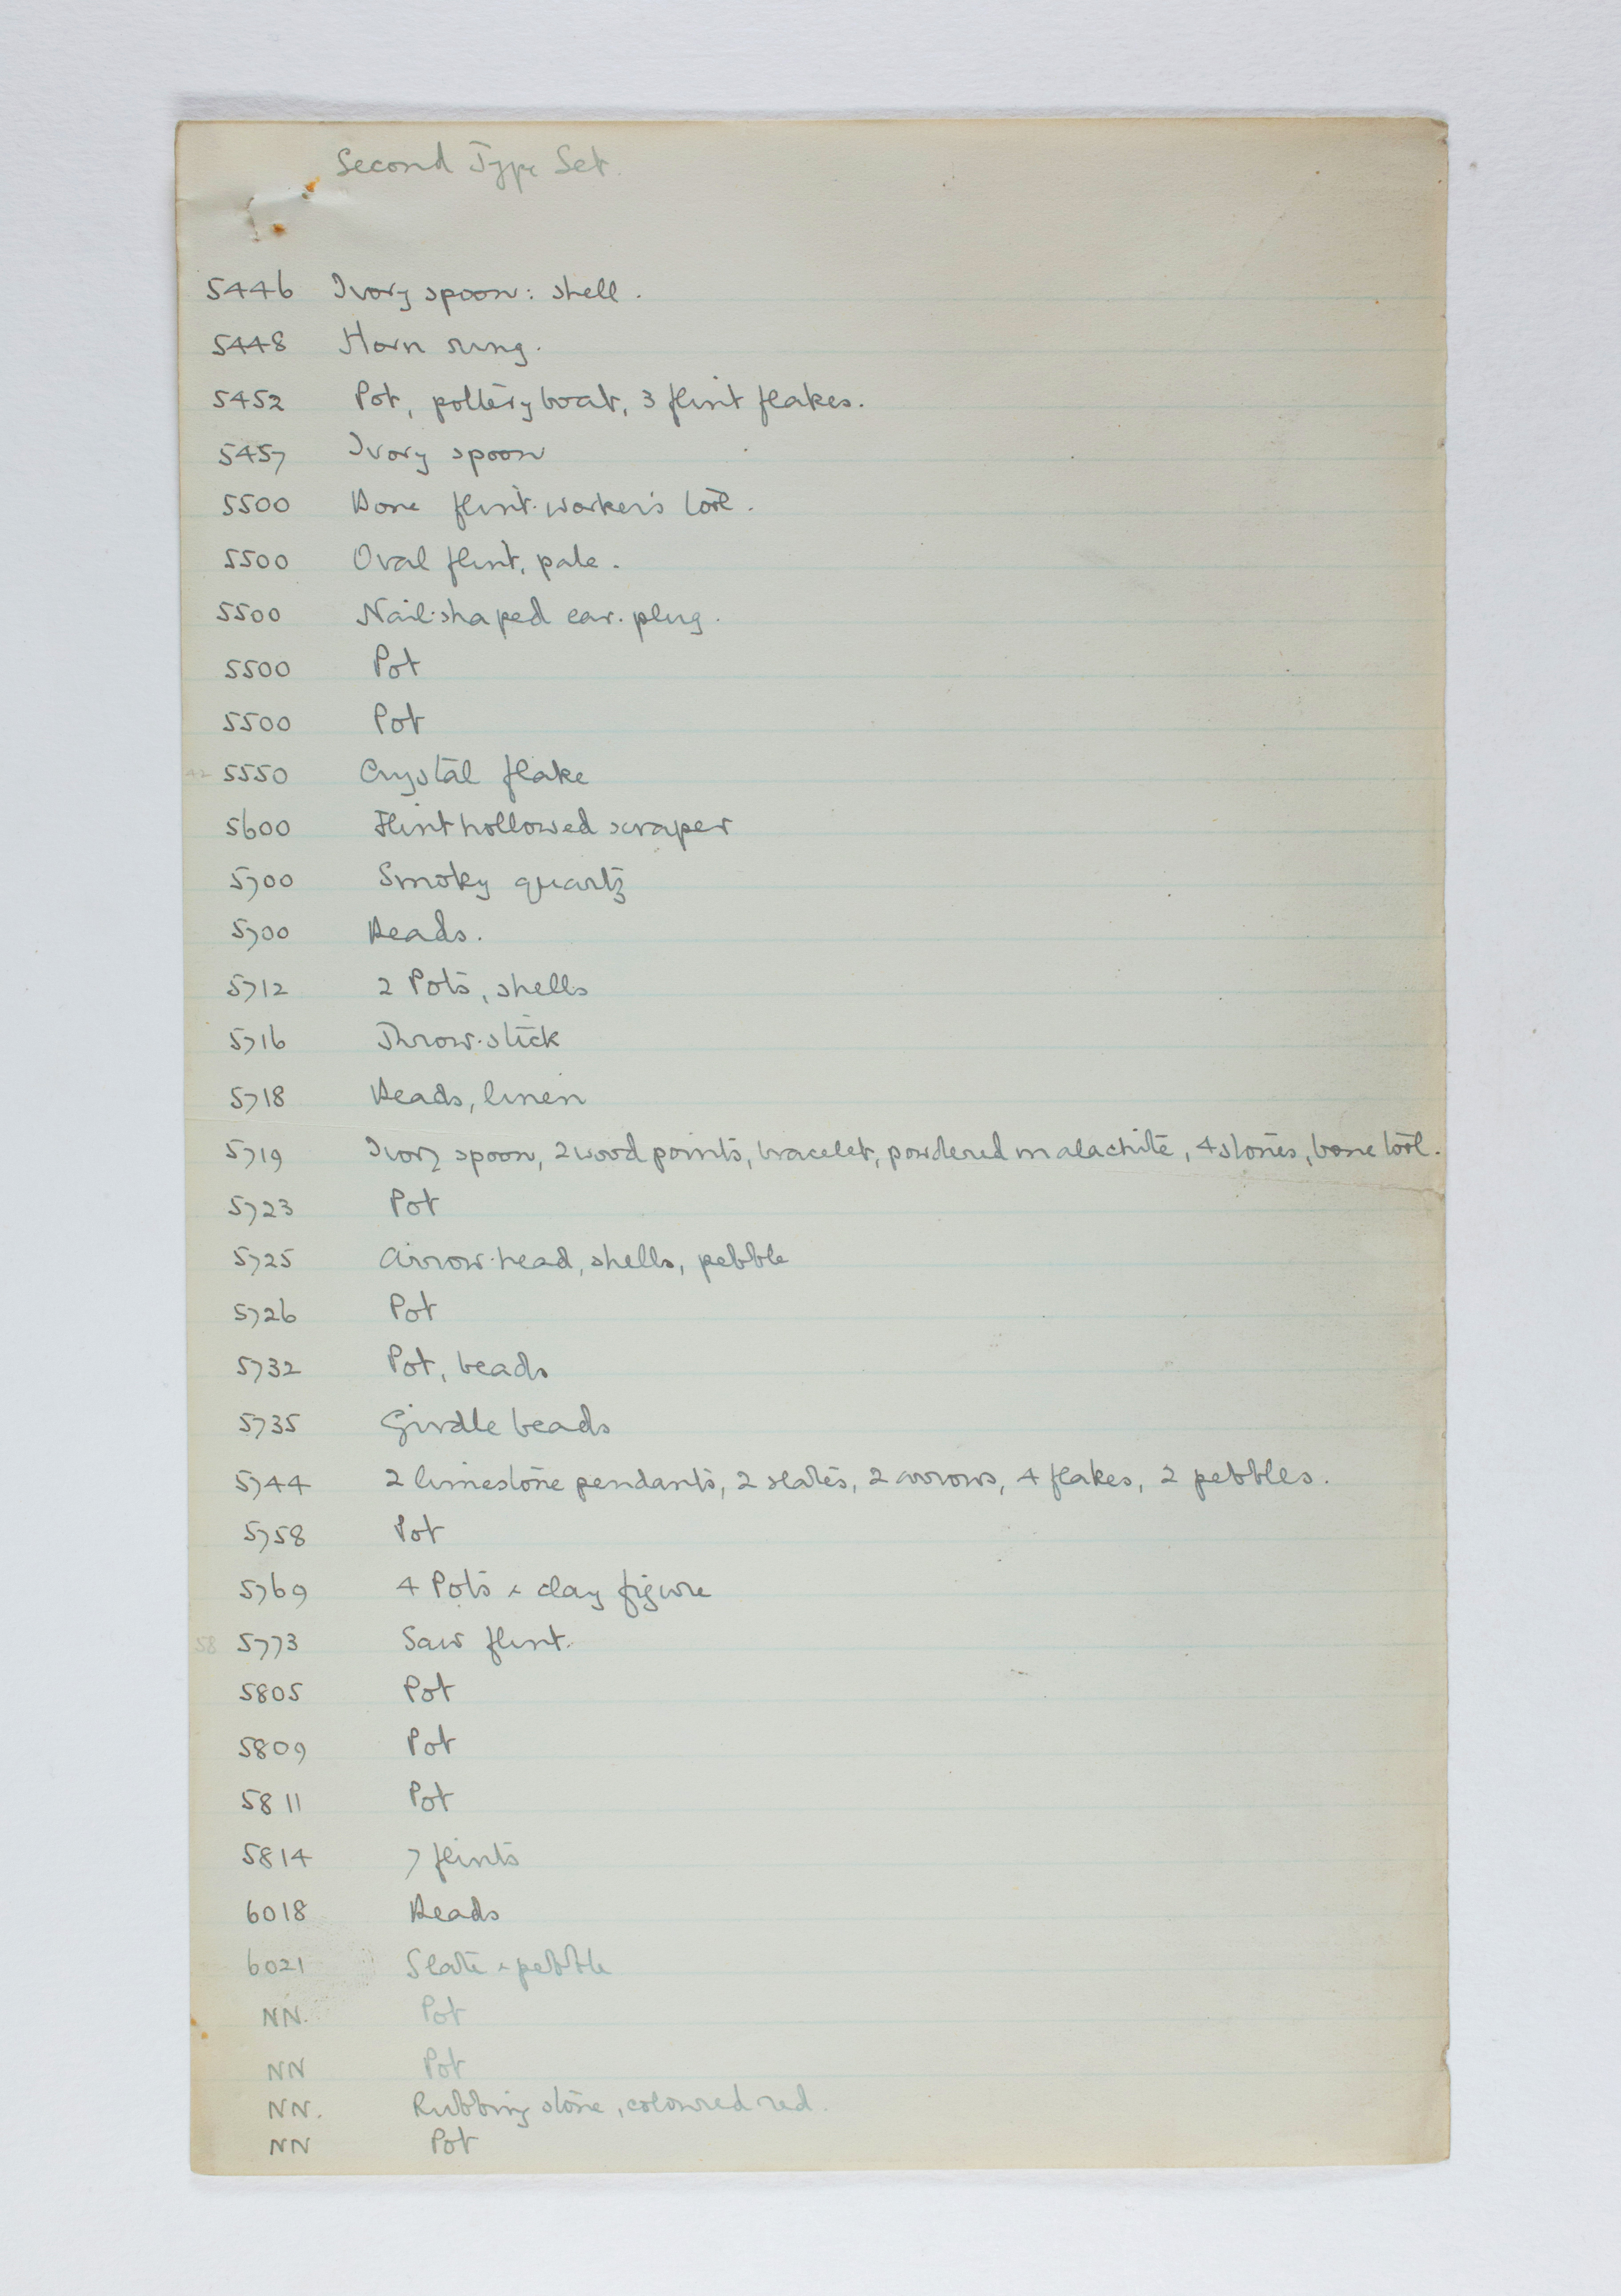 Second Type Set.
5446 Ivory spoon: shell.
5448 Horn ring.
5452 Pot, pottery boat, 3 flint flakes.
5457 Ivory spoon
5500 Bone flint-worker's tool.
5500 Oval flint, pale.
5500 Nail-shaped ear-plug.
5500 Pot
5500 Pot
42 5550 Crystal flake
5600 Flint hollowed scraper
5700 Smoky quartz
5700 Beads.
5712 2 Pots, shells
5716 Throw-stick
5718 Beads, linen
5719 Ivory spoon, 2 wood points, bracelet, powdered malachite, 4 stones, bone tool.
5723 Pot
5725 Arrow-head, shells, pebble
5726 Pot
5732 Pot, beads
5735 Girdle beads
5744 2 limestone pendants, 2 slates, 2 arrows, 4 flakes, 2 pebbles.
5758 Pot
5769 4 Pots & clay figure
58 5773 Saw flint.
5805 Pot
5809 Pot
5811 Pot
5814 7 flints
6018 Beads
6021 Slate & pebble
NN. Pot
NN Pot
NN. Rubbing stone, coloured red.
NN Pot